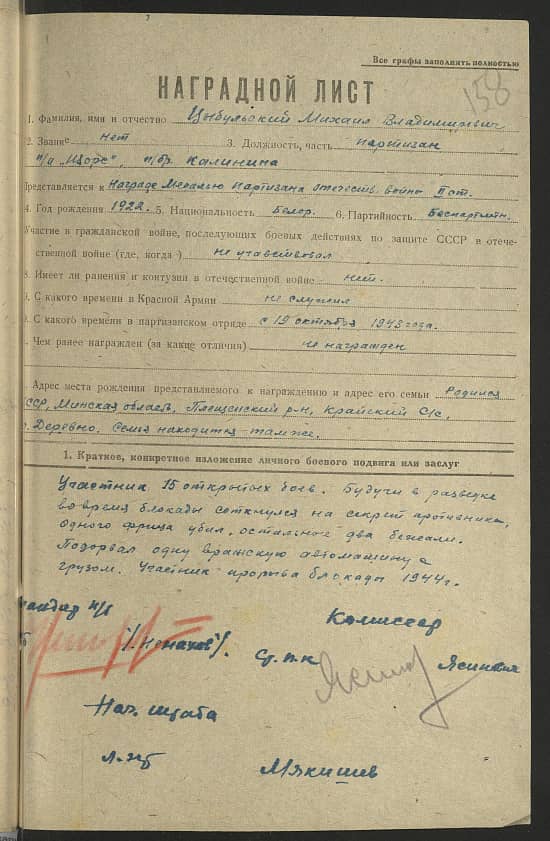 Все графы заполнить полностью
158
НАГРАДНОЙ ЛИСТ
1. Фамилия, имя и отчество Цыбульский Михаил Владимирович
2. Звание нет 3. Должность, часть партизан
п/о "Щорс", п/бр. Калинина
Представляется к Награде Медалью Партизана отечеств. войны II ст.
4. Год рождения 1922. 5. Национальность Белор. 6. Партийность Беспартийн.
Участие в гражданской войне, последующих боевых действиях по защите СССР в отече-
ственной войне (где, когда) не участвовал
8. Имеет ли ранения и контузии в отечественной войне нет.
9. С какого времени в Красной Армии не служил
С какого времени в партизанском отряде с 19 октября 1943 года.
Чем ранее награжден (за какие отличия) не награжден
Адрес места рождения представляемого к награждению и адрес его семьи Родился
ССР, Минская область, Плещенский р-н, Крайский С/с,
Деревно, Семья находится там же.
1. Краткое, конкретное изложение личного боевого подвига или заслуг
Участник 15 открытых боев. Будучи в разведке
во время блокады соткнулся на секрет противника,
одного фрица убил, остальные два бежали.
Подорвал одну вражскую автомашину с
грузом. Участник прорыва блокады 1944г.
мандир п/о
Комиссар
Ст. п-к Ясинович
Нач. штаба
л-нт Мякишев